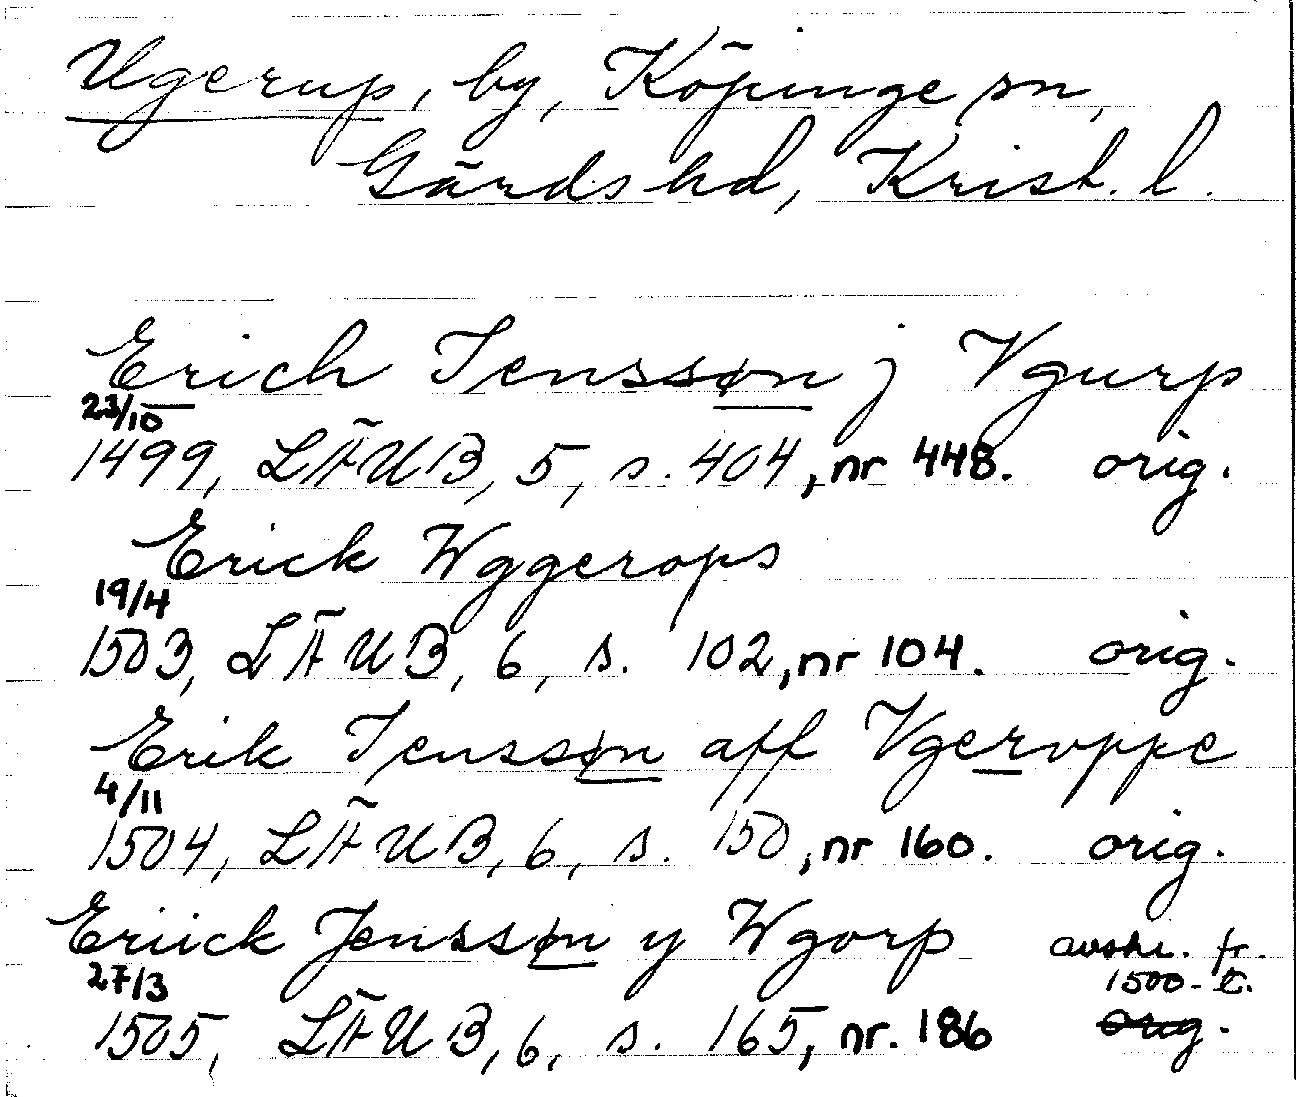 Ugerup, by, Köpinge sn,
Gärds hd, Krist. l.
Erich Jenssøn j Vgurp
23/10
1499, LÄUB, 5, s. 404, nr 448. orig.
Erick Wggerops
19/4
1503, LÄUB, 6, s. 102, nr 104. orig.
Erik Jenssøn aff Vgeroppe
4/11
1504, LÄUB, 6, s. 150, nr 160. orig.
Eriick Jenssøn y Wgorp avskr. fr.
27/3 1500-t.
1505, LÄUB, 6, s. 165, nr. 186 orig.